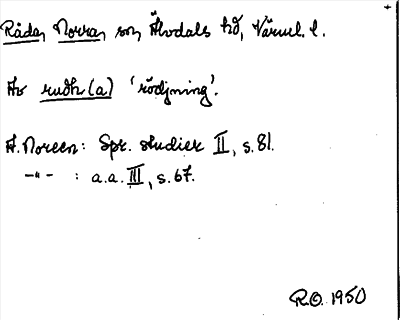 Råda, Norra, sn, Älvdals hd, Värml. l.
Av rudh(a) 'rödjning'.
A. Noreen: Spr. studier II, s. 81.
–"– : a.a. III, s. 67.
R.O. 1950